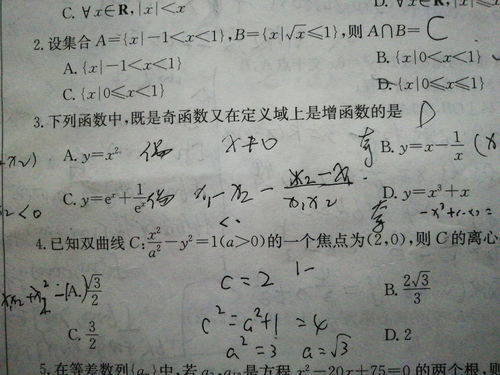 C. ∀x∈R, |x|<x
2. 设集合 A={x|-1<x<1}, B={x|√x≤1}, 则 A∩B= C
A. {x|-1<x<1}
B. {x|0<x<1}
C. {x|0≤x<1}
D. {x|0≤x≤1}
3. 下列函数中,既是奇函数又在定义域上是增函数的是 D
A. y=x² 偶 x≠0
奇 B. y=x-1/x
C. y=eˣ+1/eˣ 偶 x₁-x₂ - (x₂-x₁)/(x₁x₂)
<0
D. y=x³+x
奇
4. 已知双曲线 C: x²/a²-y²=1(a>0)的一个焦点为(2,0),则 C 的离心
A. √3/2
c=2
B. 2√3/3
C. 3/2
c²=a²+1=4
D. 2
a²=3 a=√3
5. 在等差数列{aₙ}中,若 是方程 x²-20x+75=0 的两个根,